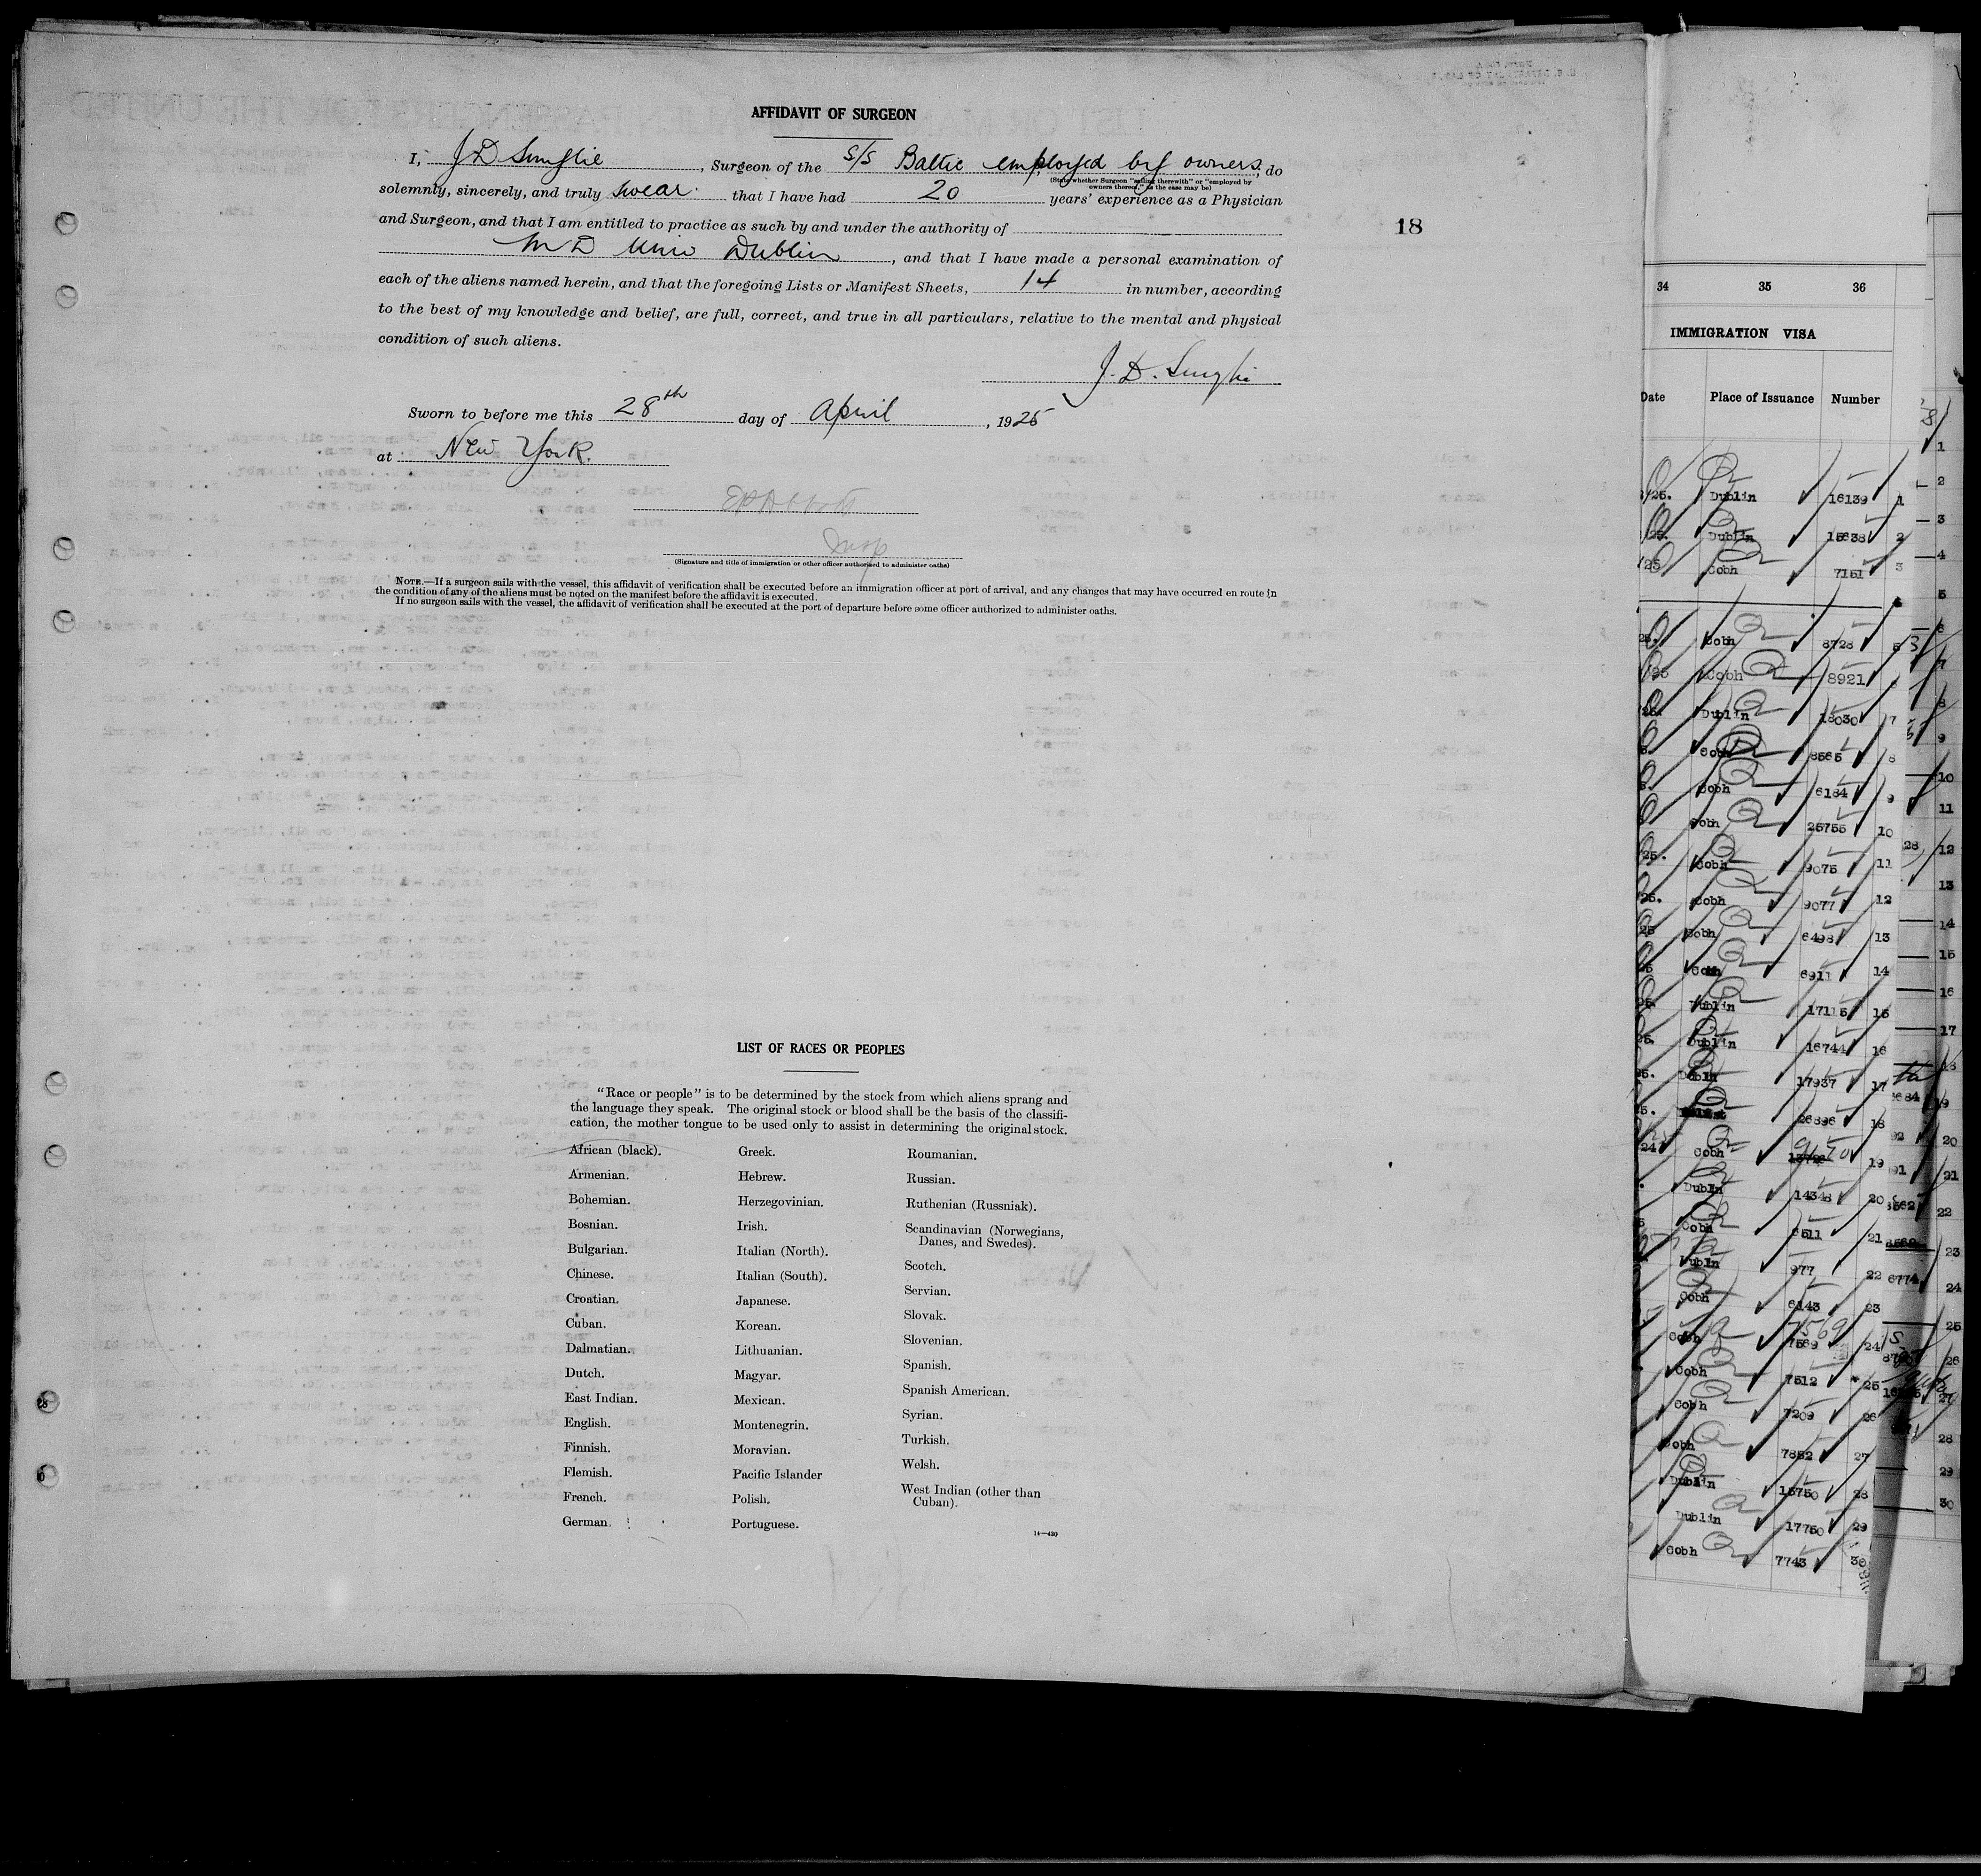 AFFIDAVIT OF SURGEON
I, J D , Surgeon of the S/S Baltic employed by owners, do
(State whether Surgeon "sailing therewith" or "employed by
owners thereof," as the case may be)
solemnly, sincerely, and truly swear that I have had 20 years' experience as a Physician
and Surgeon, and that I am entitled to practice as such by and under the authority of
M D Univ Dublin, and that I have made a personal examination of
each of the aliens named herein, and that the foregoing Lists or Manifest Sheets, 14 in number, according
to the best of my knowledge and belief, are full, correct, and true in all particulars, relative to the mental and physical
condition of such aliens.
J. D.
Sworn to before me this 28th day of April, 1925
at New York.
Insp
(Signature and title of immigration or other officer authorized to administer oaths)
NOTE.—If a surgeon sails with the vessel, this affidavit of verification shall be executed before an immigration officer at port of arrival, and any changes that may have occurred en route in
the condition of any of the aliens must be noted on the manifest before the affidavit is executed.
If no surgeon sails with the vessel, the affidavit of verification shall be executed at the port of departure before some officer authorized to administer oaths.
18
LIST OF RACES OR PEOPLES
"Race or people" is to be determined by the stock from which aliens sprang and
the language they speak. The original stock or blood shall be the basis of the classifi-
cation, the mother tongue to be used only to assist in determining the original stock.
African (black).
Armenian.
Bohemian.
Bosnian.
Bulgarian.
Chinese.
Croatian.
Cuban.
Dalmatian.
Dutch.
East Indian.
English.
Finnish.
Flemish.
French.
German.
Greek.
Hebrew.
Herzegovinian.
Irish.
Italian (North).
Italian (South).
Japanese.
Korean.
Lithuanian.
Magyar.
Mexican.
Montenegrin.
Moravian.
Pacific Islander
Polish.
Portuguese.
Roumanian.
Russian.
Ruthenian (Russniak).
Scandinavian (Norwegians,
Danes, and Swedes).
Scotch.
Servian.
Slovak.
Slovenian.
Spanish.
Spanish American.
Syrian.
Turkish.
Welsh.
West Indian (other than
Cuban).
14—430
34 35 36
IMMIGRATION VISA
Date Place of Issuance Number
Dublin 16139 1
Dublin 15638 2
Cobh 7151 3
Cobh 8728 5
Cobh 8921
Dublin 18030 7
Cobh 8565 8
Cobh 6184 9
Cobh 25755 10
Cobh 9075 11
Cobh 9077 12
Cobh 6498 13
Cobh 6911 14
Dublin 17115 15
Dublin 16744 16
Dublin 17937 17
26896 18
Cobh 19
Dublin 14348 20
Cobh 6511 21
Dublin 977 22
Cobh 6143 23
Cobh 7569 24
Cobh 7512 25
Cobh 7209 26
Cobh 7852 27
Dublin 15750 28
Dublin 17750 29
Cobh 7743 30
1
2
3
4
5
6
7
8
9
10
11
12
13
14
15
16
17
18
19
20
21
22
23
24
25
26
27
28
29
30